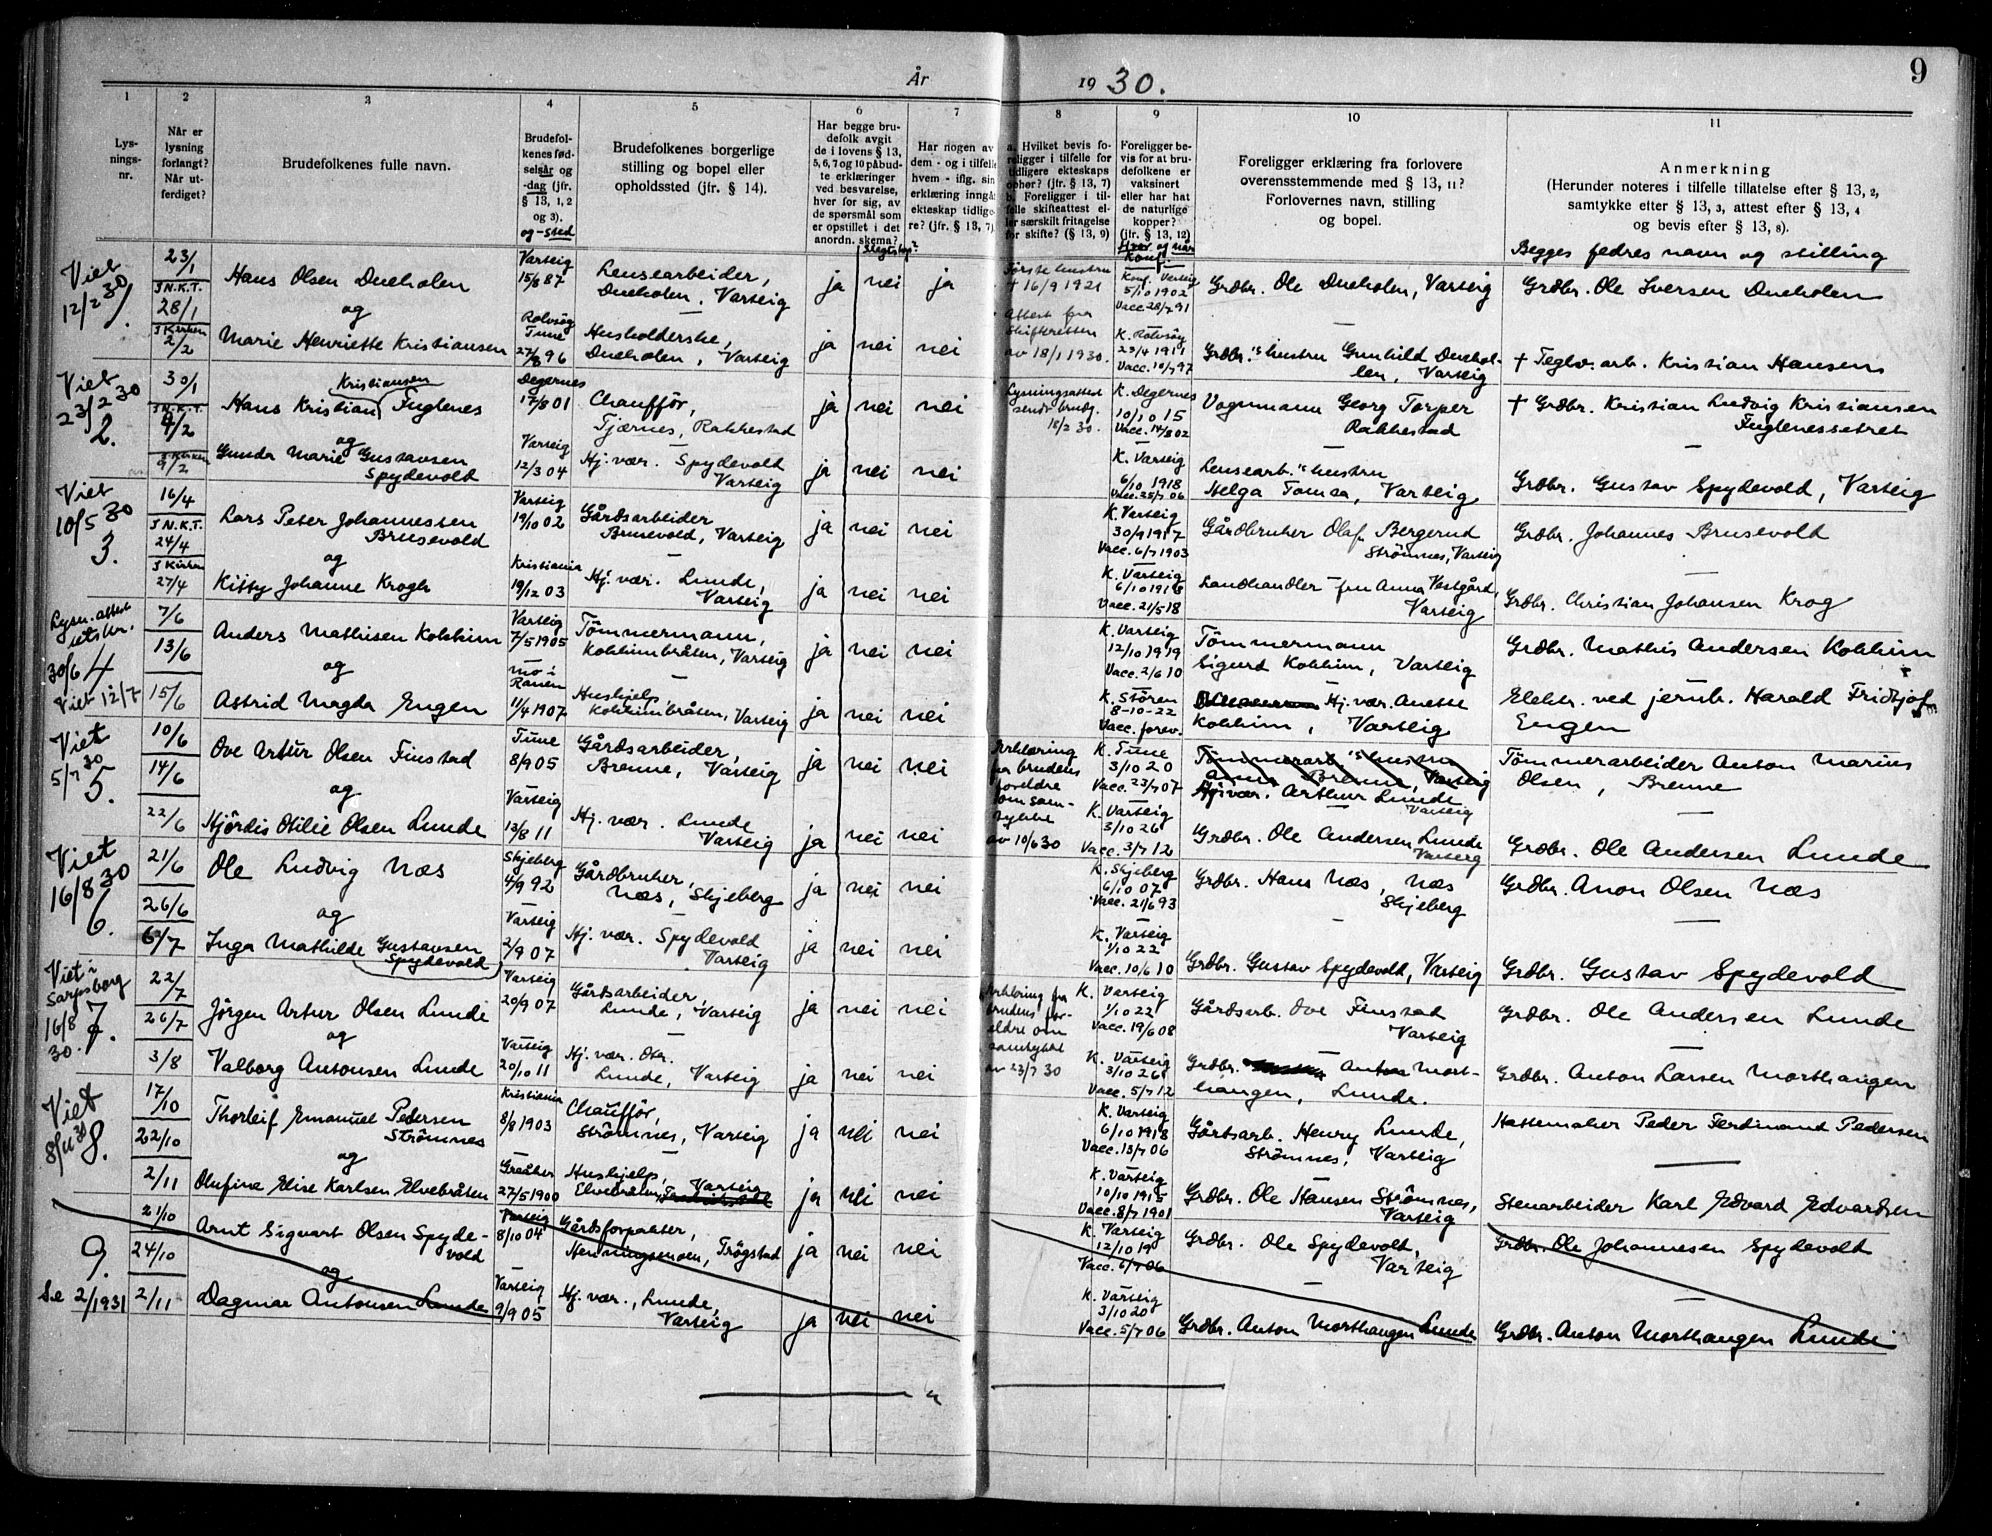 År 1930.
9
1
2
3
4
5
6
7
8
9
10
11
Lys-
nings-
nr.
Når er
lysning
forlangt?
Når ut-
ferdiget?
Brudefolkenes fulle navn.
Brudefol-
kenes fød-
selsår og
-dag (jfr.
§ 13, 1, 2
og 3).
og -sted
Brudefolkenes borgerlige
stilling og bopel eller
opholdssted (jfr. § 14).
Har begge bru-
defolk avgit
de i lovens § 13,
5, 6, 7 og 10 påbud-
te erklæringer
ved besvarelse,
hver for sig, av
de spørsmål som
er opstillet i det
anordn. skema?
Slegtskap?
Har nogen av
dem - og i tilfelle
hvem - iflg. sin
erklæring inngå
ekteskap tidlige-
re? (jfr. § 13, 7)
a. Hvilket bevis fo-
religger i tilfelle for
tidligere ekteskaps
ophør? (jfr. § 13, 7)
b. Foreligger i til-
felle skifteattest el-
ler særskilt fritagelse
for skifte? (§ 13, 9)
Foreligger be-
vis for at bru-
defolkene er
vaksinert
eller har hat
de naturlige
kopper?
(jfr. § 13, 12)
Hvor og når
konf.
Foreligger erklæring fra forlovere
overensstemmende med § 13, 11?
Forlovernes navn, stilling
og bopel.
Anmerkning
(Herunder noteres i tilfelle tillatelse efter § 13, 2,
samtykke efter § 13, 3, attest efter § 13, 4
og bevis efter § 13, 8).
Begges fedres navn og stilling
Viet
12/2 30
1.
23/1
I N.K.T.
28/1
I Kirken
2/2
Hans Olsen Dueholen
og
Marie Henriette Kristiansen
Varteig
15/8 87
Rolvsøy
Tune
27/8 96
Lensearbeider,
Dueholen, Varteig
Husholderske,
Dueholen, Varteig
ja nei ja
ja nei nei
Første hustru
+ 16/9 1921
Attest fra
Skifteretten
av 18/1 1930.
Konf. Varteig
5/10 1902
Vacc 28/7 91
K. Rolvsøy
23/4 1911
Vacc. 10/7 97
Grdbr. Ole Dueholen, Varteig
Grdbr.'s hustru Gunhild Duehol-
len, Varteig
Grdbr. Ole Iversen Dueholen
+ Teglv. arb. Kristian Hansen
Viet
23/2 30
2.
30/1
I N.K.T.
4/2
I Kirken
9/2
Kristiansen
Hans Kristian Fuglenes
og
Gunda Marie Gustavsen
Spydevold
Degernes
17/8 01
Varteig
12/3 04
Chauffør,
Tjærnes, Rakkestad
Hj. vær. Spydevold
Varteig
ja nei nei
ja nei nei
Lysningsattest
sendt brudg.
18/2 30.
K. Degernes
10/10 15
Vacc. 14/8 02
K. Varteig
6/10 1918
Vacc. 25/7 06
Vognmann Georg Torper
Rakkestad
Lensearb.'s hustru
Helga Tomta, Varteig
+ Grdbr. Kristian Ludvig Kristiansen
Fuglenessetret
Grdbr. Gustav Spydevold, Varteig
Viet
10/5 30
3.
16/4
I N.K.T.
24/4
I Kirken
27/4
Lars Peter Johannessen
Brusevold
og
Kitty Johanne Krogh
Varteig
19/10 02
Kristiania
19/12 03
Gårdsarbeider
Brusevold, Varteig
Hj. vær. Lunde,
Varteig
ja nei nei
ja nei nei
K. Varteig
30/9 1917
Vacc. 6/7 1903
K. Varteig
6/10 1918
Vacc. 21/5 18
Gårdbruker Olaf Bergerud
Strømnes, Varteig
Landhandler-fru Anna Vestgård,
Varteig
Grdbr. Johannes Brusevold
Grdbr. Christian Johansen Krog
Lysn. attest
utst.
30/6
4
Viet 12/7
7/6
13/6
15/6
Anders Mathisen Kolkinn
og
Astrid Magda Engen
Varteig
7/5 1905
Mo i
Ranen
11/4 1907
Tømmermann,
Kolkinnbråten, Varteig
Hushjelp,
Kolkinnbråten, Varteig
ja nei nei
ja nei nei
K. Varteig
12/10 1919
Vacc. 2/6 10
K. Støren
8-10-22
Vacc. forev.
Tømmermann
Sigurd Kolkinn, Varteig
Hj. vær. Anette
Kolkinn, Varteig
Grdbr. Mathis Andersen Kolkinn
Elektr. ved jernb. Harald Fridtjof
Engen
Viet
5/7 30
5.
10/6
14/6
22/6
Ove Artur Olsen Finstad
og
Hjördis Otilie Olsen Lunde
Tune
8/9 05
Varteig
13/8 11
Gårdsarbeider,
Brenne, Varteig
Hj. vær. Lunde
Varteig
ja nei nei
ja nei nei
Erklæring
fra brudens
foreldre
om sam-
tykke
av 10/6 30
K. Tune
3/10 20
Vacc. 23/7 07
K. Varteig
3/10 26
Vacc. 3/7 12
Tømmerarb.'s hustru
Anna Brenne, Varteig
Hj. vær. Arthur Lunde
Varteig
Grdbr. Ole Andersen Lunde
Varteig
Tømmerarbeider Anton Marius
Olsen, Brenne
Grdbr. Ole Andersen Lunde
Viet
16/8 30
6.
21/6
26/6
6/7
Ole Ludvig Næs
og
Inga Mathilde Gustavsen
Spydevold
Skjeberg
4/9 92
Varteig
2/9 07
Gårdbruker,
Næs, Skjeberg
Hj. vær. Spydevold
Varteig
ja nei nei
ja nei nei
K. Skjeberg
6/10 07
Vacc. 21/6 93
K. Varteig
1/10 22
Vacc. 10/6 10
Grdbr. Hans Næs, Næs
Skjeberg
Grdbr. Gustav Spydevold, Varteig
Grdbr. Anon Olsen Næs
Grdbr. Gustav Spydevold
Viet i
Sarpsborg
16/8
30.
7.
22/7
26/7
3/8
Jörgen Artur Olsen Lunde
og
Valborg Antonsen Lunde
Varteig
20/9 07
Varteig
20/10 11
Gårdsarbeider,
Lunde, Varteig
Hj. vær. Dtr.
Lunde, Varteig
ja nei nei
ja nei nei
Erklæring fra
brudens for-
eldre om
samtykke
av 23/7 30
K. Varteig
1/10 22
Vacc. 19/6 08
K. Varteig
3/10 26
Vacc. 5/7 12
Gårdsarb. Ove Finstad
Varteig
Grdbr. Anton Mort-
hangen, Lunde.
Grdbr. Ole Andersen Lunde
Grdbr. Anton Larsen Morthaugen
Viet
8/11 30
8.
17/10
22/10
2/11
Thorleif Emanuel Pedersen
Strömnes
og
Olufine Elise Karlsen Elvebråten
Kristiania
8/8 1903
Greåker
27/5 1900
Chauffør,
Strömnes, Varteig
Hushjelp,
Elvebråten, Varteig
ja nei nei
ja nei nei
K. Varteig
6/10 1918
Vacc. 13/7 06
K. Varteig
10/10 1915
Vacc. 8/7 1901
Gårdsarb. Henry Lunde,
Strömnes, Varteig
Grdbr. Ole Hansen Strömnes,
Varteig
Hattemaker Peder Ferdinand Pedersen
Stenarbeider Karl Edvard Edvardsen
9.
Se 2/1931
21/10
24/10
2/11
Arnt Sigvart Olsen Spyde-
vold
og
Dagmar Antonsen Lunde
Varteig
8/10 04
Varteig
9/9 05
Gårdsforpakter,
Henningsmoen, Trøgstad
Hj. vær., Lunde,
Varteig
ja nei nei
ja nei nei
K. Varteig
12/10 19
Vacc. 6/7 06
K. Varteig
3/10 20
Vacc. 5/7 06
Grdbr. Ole Spydevold,
Varteig
Grdbr. Anton Morthaugen Lunde
Grdbr. Ole Johannesen Spydevold
Grdbr. Anton Morthaugen Lunde